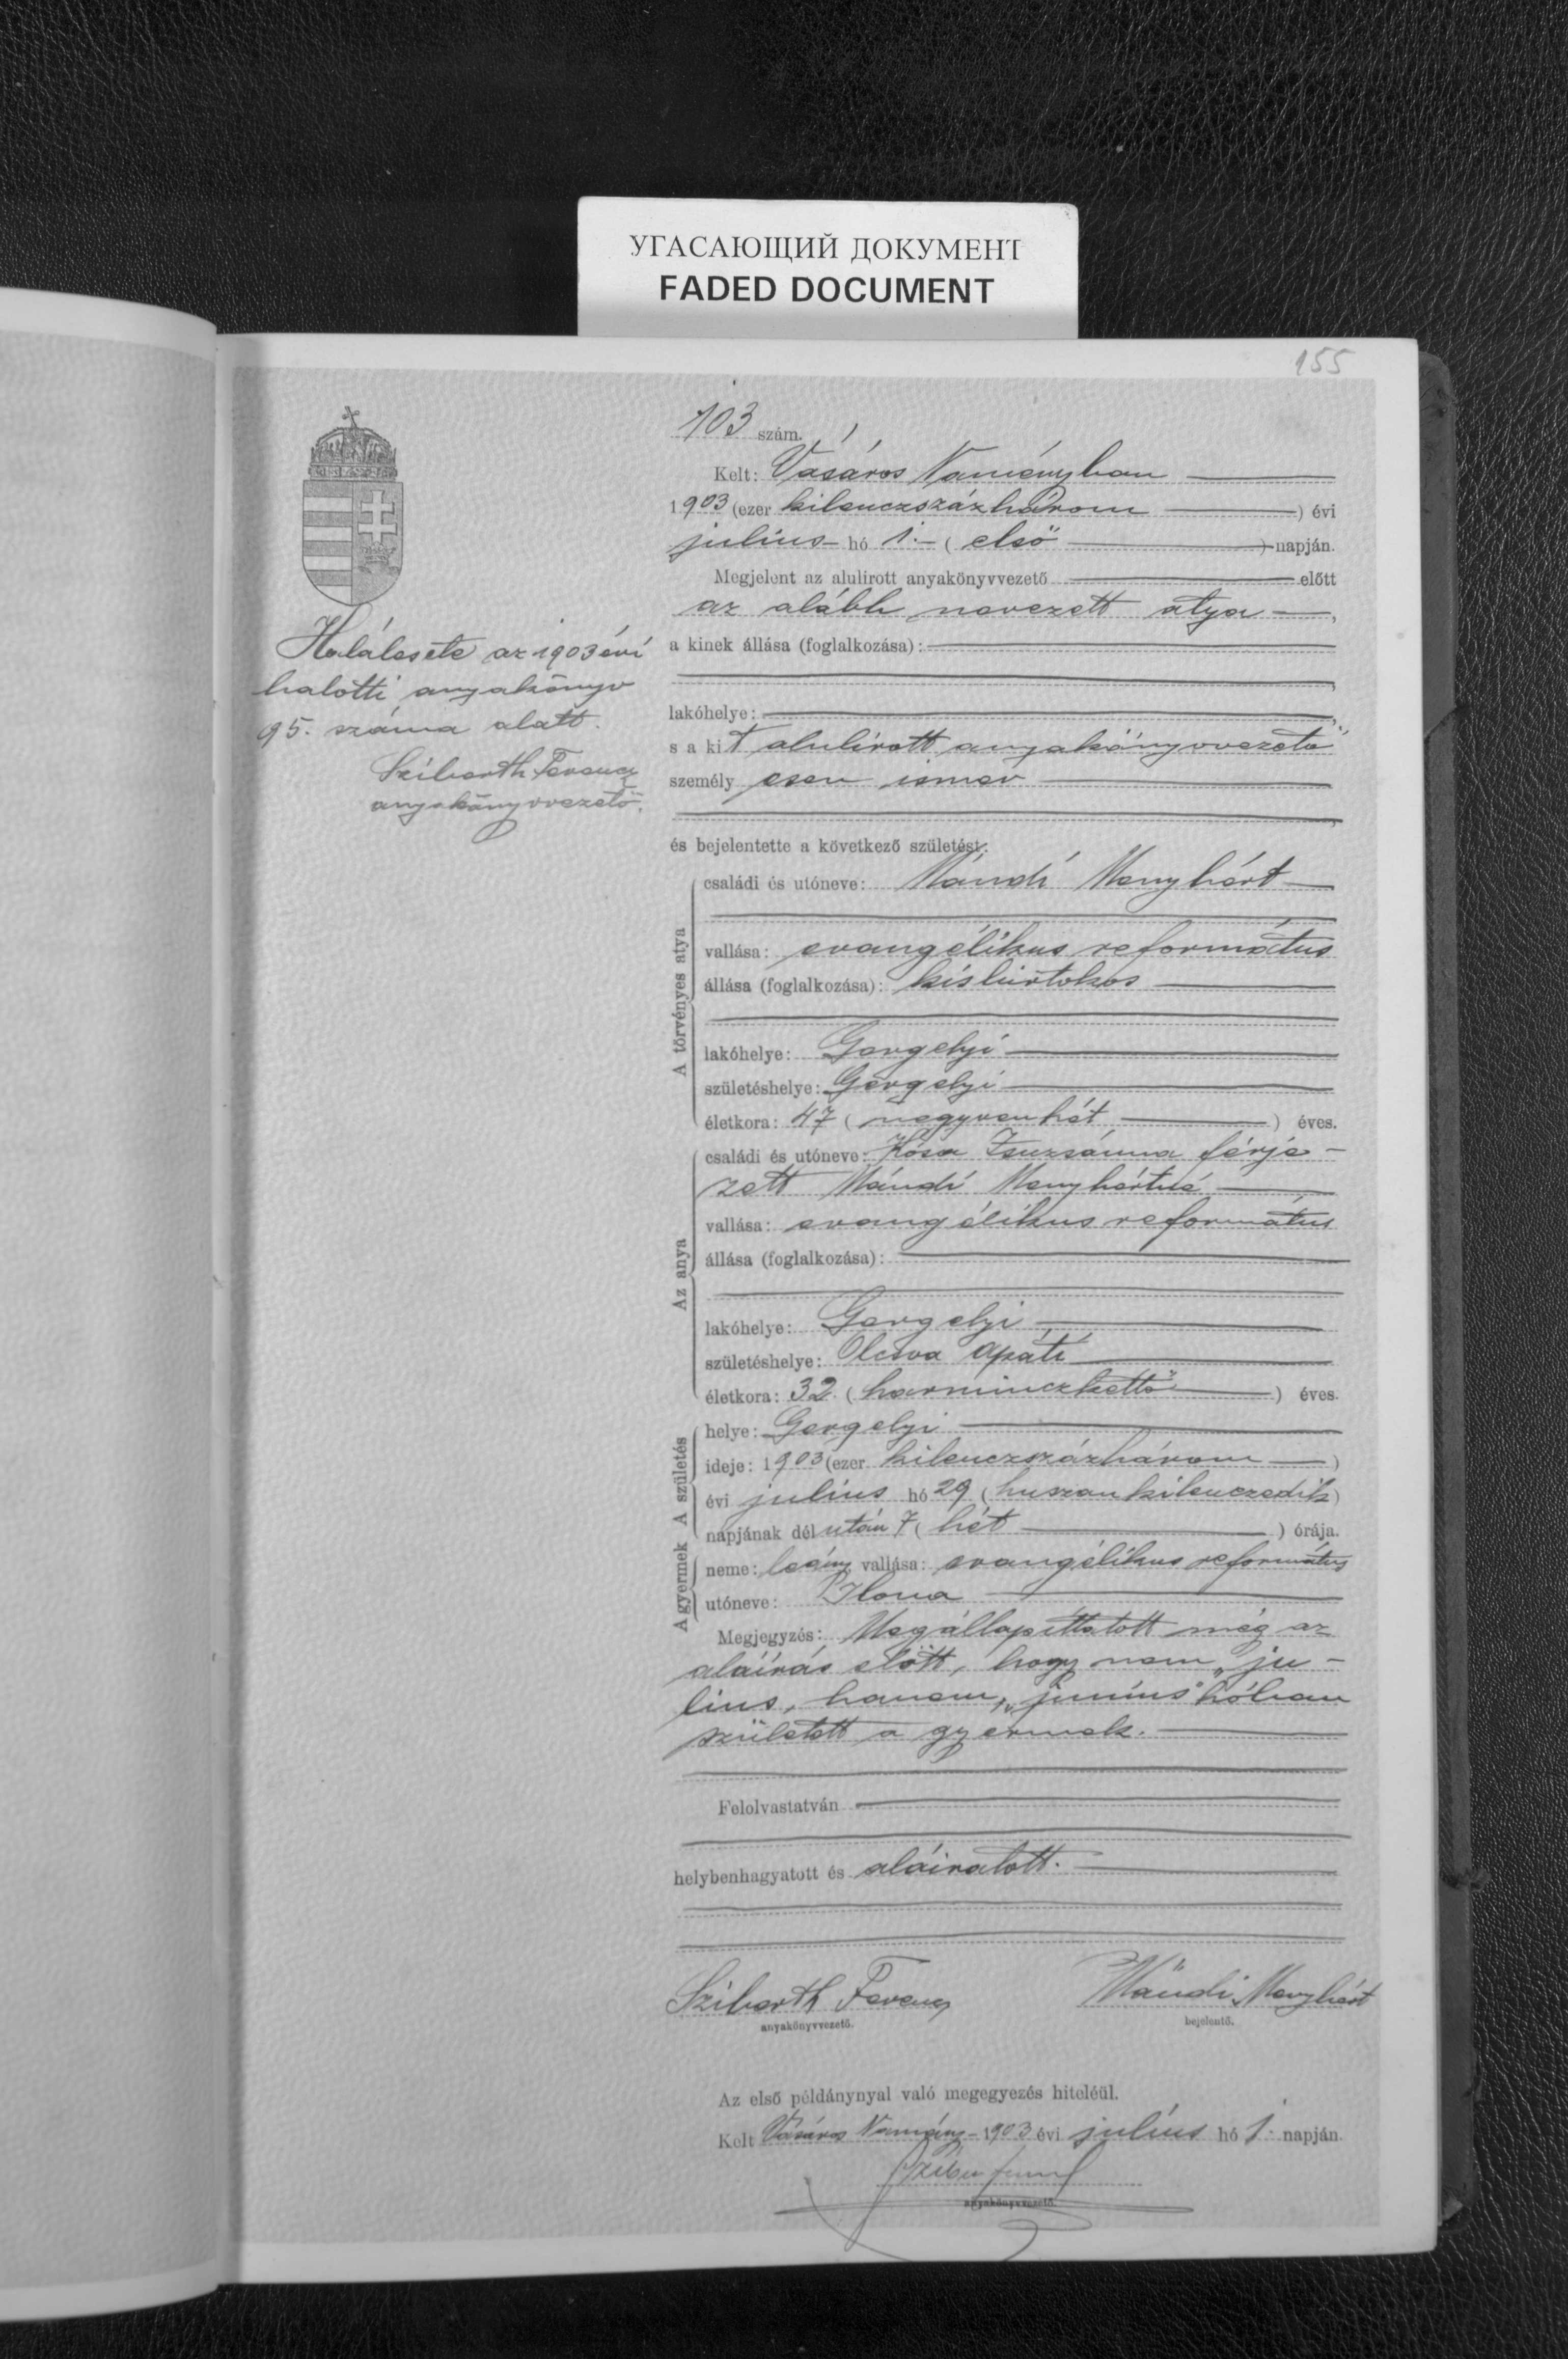 УГАСАЮЩИЙ ДОКУМЕНТ
FADED DOCUMENT
155
103 szám.
Kelt: Vásáros Naményban
1903 (ezer kilenczszázhárom ) évi
július hó 1. ( első ) napján.
Megjelent az alulirott anyakönyvvezető előtt
az alább nevezett atya ,
a kinek állása (foglalkozása):
lakóhelye:
s a kit alulírott anyakönyvvezető
személyesen ismer
és bejelentette a következő születést:
A törvényes atya
családi és utóneve: Mándi Menyhért
vallása: evangélikus református
állása (foglalkozása): kisbirtokos
lakóhelye: Gergelyi
születéshelye: Gergelyi
életkora: 47 ( negyvenhét ) éves.
Az anya
családi és utóneve: Kósa Zsuzsánna férje-
zett Mándi Menyhértné
vallása: evangélikus református
állása (foglalkozása):
lakóhelye: Gergelyi
születéshelye: Olcsva Apáti
életkora: 32 ( harminczkettő ) éves.
A születés
helye: Gergelyi
ideje: 1903 (ezer kilenczszázhárom )
évi július hó 29 ( huszonkilenczedik )
napjának dél után 7 ( hét ) órája.
A gyermek
neme: leány vallása: evangélikus református
utóneve: Ilona
Megjegyzés: Megállapíttatott még az
aláírás előtt, hogy nem „ju-
lius, hanem „junius" hóban
született a gyermek.
Felolvastatván
helybenhagyatott és aláiratott.
Sziberth Ferencz
anyakönyvvezető.
Mándi Menyhért
bejelentő.
Az első példánynyal való megegyezés hiteléül.
Kelt Vásáros Namény 1903 évi július hó 1. napján.
anyakönyvvezető.
Halálesete az 1903 évi
halotti anyakönyv
95. száma alatt.
Sziberth Ferencz
anyakönyvvezető.